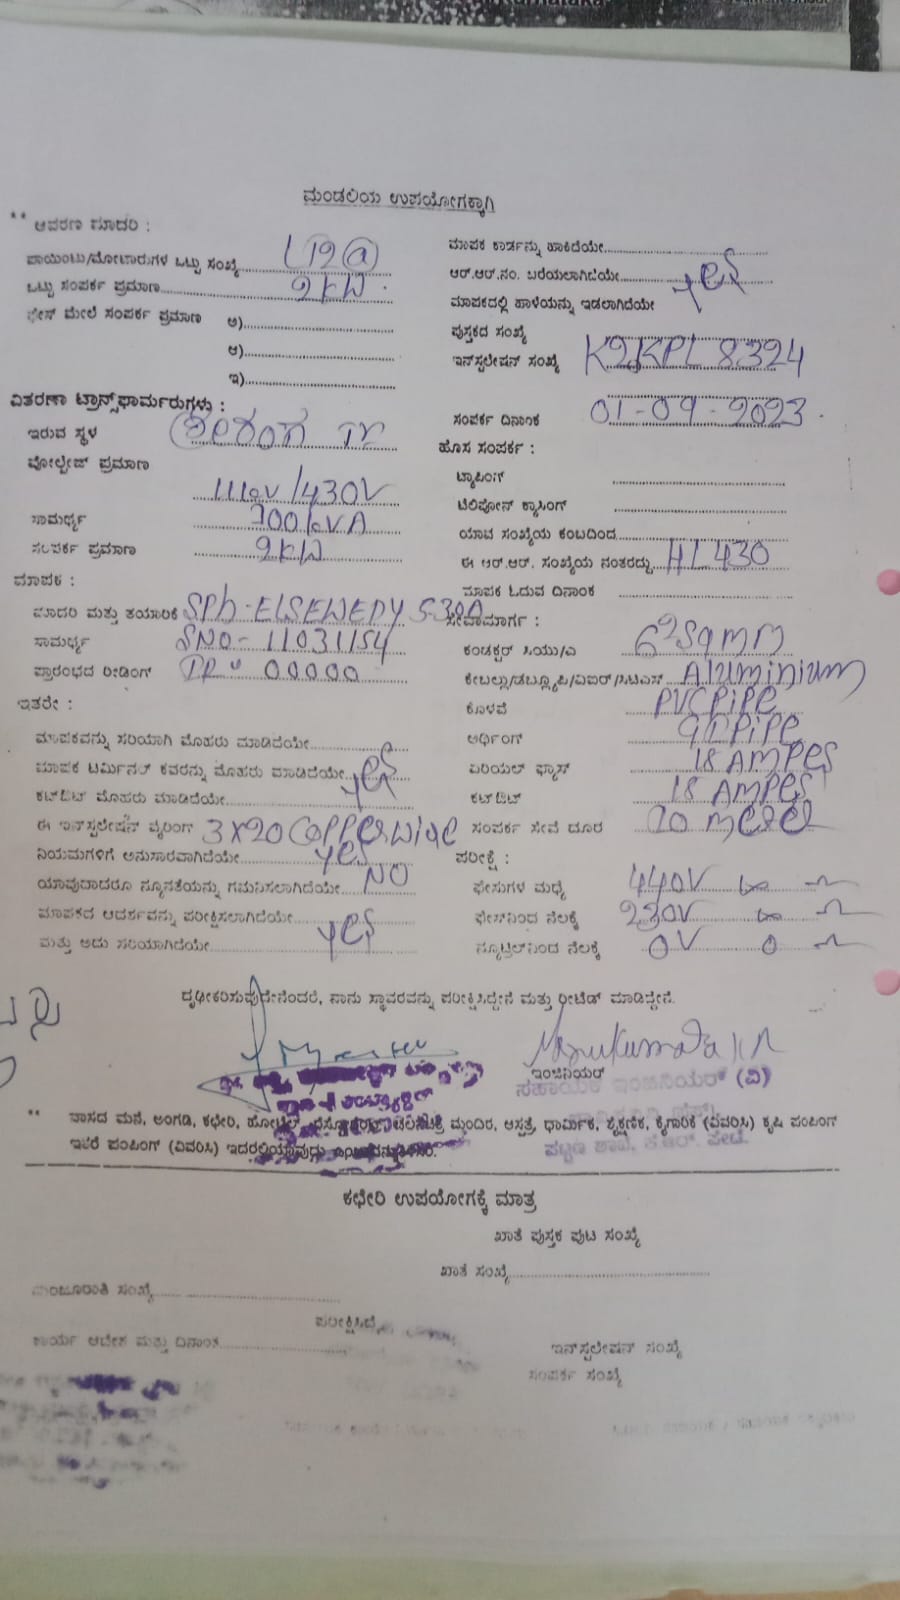 ಮಂಡಲಿಯ ಉಪಯೋಗಕ್ಕಾಗಿ
** ಆವರಣ ಮಾದರಿ :
ಪಾಯಿಂಟು/ಮೋಟಾರುಗಳ ಒಟ್ಟು ಸಂಖ್ಯೆ
ಒಟ್ಟು ಸಂಪರ್ಕ ಪ್ರಮಾಣ 2KW
ಫೇಸ್ ಮೇಲೆ ಸಂಪರ್ಕ ಪ್ರಮಾಣ ಅ)
ಆ)
ಇ)
ವಿತರಣಾ ಟ್ರಾನ್ಸ್‌ಫಾರ್ಮರುಗಳು :
ಇರುವ ಸ್ಥಳ
ವೋಲ್ಟೇಜ್ ಪ್ರಮಾಣ
/430V
ಸಾಮರ್ಥ್ಯ 100KVA
ಸಂಪರ್ಕ ಪ್ರಮಾಣ 2KW
ಮಾಪಕ :
ಮಾದರಿ ಮತ್ತು ತಯಾರಿಕೆ SPh-ELSEWEDY 5-30A
ಸಾಮರ್ಥ್ಯ SNO-11031154
ಪ್ರಾರಂಭದ ರೀಡಿಂಗ್ 00000
ಇತರೇ :
ಮಾಪಕವನ್ನು ಸರಿಯಾಗಿ ಮೊಹರು ಮಾಡಿದೆಯೇ
ಮಾಪಕ ಟರ್ಮಿನಲ್ ಕವರನ್ನು ಮೊಹರು ಮಾಡಿದೆಯೇ yes
ಕಟ್‌ಔಟ್ ಮೊಹರು ಮಾಡಿದೆಯೇ
ಈ ಇನ್‌ಸ್ಟಲೇಷನ್ ವೈರಿಂಗ್ 3X20 Copper wire
ನಿಯಮಗಳಿಗೆ ಅನುಸಾರವಾಗಿದೆಯೇ yes
ಯಾವುದಾದರೂ ನ್ಯೂನತೆಯನ್ನು ಗಮನಿಸಲಾಗಿದೆಯೇ NO
ಮಾಪಕದ ಆದರ್ಶವನ್ನು ಪರೀಕ್ಷಿಸಲಾಗಿದೆಯೇ
ಮತ್ತು ಅದು ಸರಿಯಾಗಿದೆಯೇ yes
ಮಾಪಕ ಕಾರ್ಡನ್ನು ಹಾಕಿದೆಯೇ
ಆರ್.ಆರ್.ನಂ. ಬರೆಯಲಾಗಿದೆಯೇ yes
ಮಾಪಕದಲ್ಲಿ ಹಾಳೆಯನ್ನು ಇಡಲಾಗಿದೆಯೇ
ಪುಸ್ತಕದ ಸಂಖ್ಯೆ
ಇನ್‌ಸ್ಟಲೇಷನ್ ಸಂಖ್ಯೆ K2KPL 8324
ಸಂಪರ್ಕ ದಿನಾಂಕ 01-09-2023
ಹೊಸ ಸಂಪರ್ಕ :
ಟ್ಯಾಪಿಂಗ್
ಟೆಲಿಫೋನ್ ಕ್ರಾಸಿಂಗ್
ಯಾವ ಸಂಖ್ಯೆಯ ಕಂಬದಿಂದ
ಈ ಆರ್.ಆರ್. ಸಂಖ್ಯೆಯ ನಂತರದ್ದು HL430
ಮಾಪಕ ಓದುವ ದಿನಾಂಕ
ಸೇವಾಮಾರ್ಗ :
ಕಂಡಕ್ಟರ್ ಸಿಯು/ಎ
ಕೇಬಲ್ಲು/ಡಬ್ಲ್ಯೂಪಿ/ಎಐಆರ್/ಸಿಟಿಎಸ್ Aluminium
ಕೊಳವೆ PVC Pipe
ಅರ್ಥಿಂಗ್ GI Pipe
ಏರಿಯಲ್ ಫ್ಯೂಸ್ 18 AMPES
ಕಟ್‌ಔಟ್ 18 AMPES
ಸಂಪರ್ಕ ಸೇವೆ ದೂರ
ಪರೀಕ್ಷೆ :
ಫೇಸುಗಳ ಮಧ್ಯೆ 440V
ಫೇಸ್‌ನಿಂದ ನೆಲಕ್ಕೆ 230V
ನ್ಯೂಟ್ರಲ್‌ನಿಂದ ನೆಲಕ್ಕೆ 0V 0
ದೃಢೀಕರಿಸುವುದೇನೆಂದರೆ, ನಾನು ಸ್ಥಾವರವನ್ನು ಪರೀಕ್ಷಿಸಿದ್ದೇನೆ ಮತ್ತು ರೀಟೆಡ್ ಮಾಡಿದ್ದೇನೆ.
ಇಂಜಿನಿಯರ್
ಸಹಾಯಕ ಇಂಜಿನಿಯರ್ (ವಿ)
** ವಾಸದ ಮನೆ, ಅಂಗಡಿ, ಕಛೇರಿ, ಹೋಟೆಲ್, ರೆಸ್ಟೋರೆಂಟ್, ಚಲನಚಿತ್ರ ಮಂದಿರ, ಆಸ್ಪತ್ರೆ, ಧಾರ್ಮಿಕ, ಶೈಕ್ಷಣಿಕ, ಕೈಗಾರಿಕೆ (ವಿವರಿಸಿ) ಕೃಷಿ ಪಂಪಿಂಗ್
ಇತರೆ ಪಂಪಿಂಗ್ (ವಿವರಿಸಿ) ಇದರಲ್ಲಿಯಾವುದು
ಪಟ್ಟಣ ಶಾಖೆ, ಕೆ.ಆರ್. ಪೇಟೆ.
ಕಛೇರಿ ಉಪಯೋಗಕ್ಕೆ ಮಾತ್ರ
ಖಾತೆ ಪುಸ್ತಕ ಪುಟ ಸಂಖ್ಯೆ
ಖಾತೆ ಸಂಖ್ಯೆ
ಮಂಜೂರಾತಿ ಸಂಖ್ಯೆ
ಪರೀಕ್ಷಿಸಿದೆ
ಕಾರ್ಯ ಆದೇಶ ಮತ್ತು ದಿನಾಂಕ
ಇನ್‌ಸ್ಟಲೇಷನ್ ಸಂಖ್ಯೆ
ಸಂಪರ್ಕ ಸಂಖ್ಯೆ